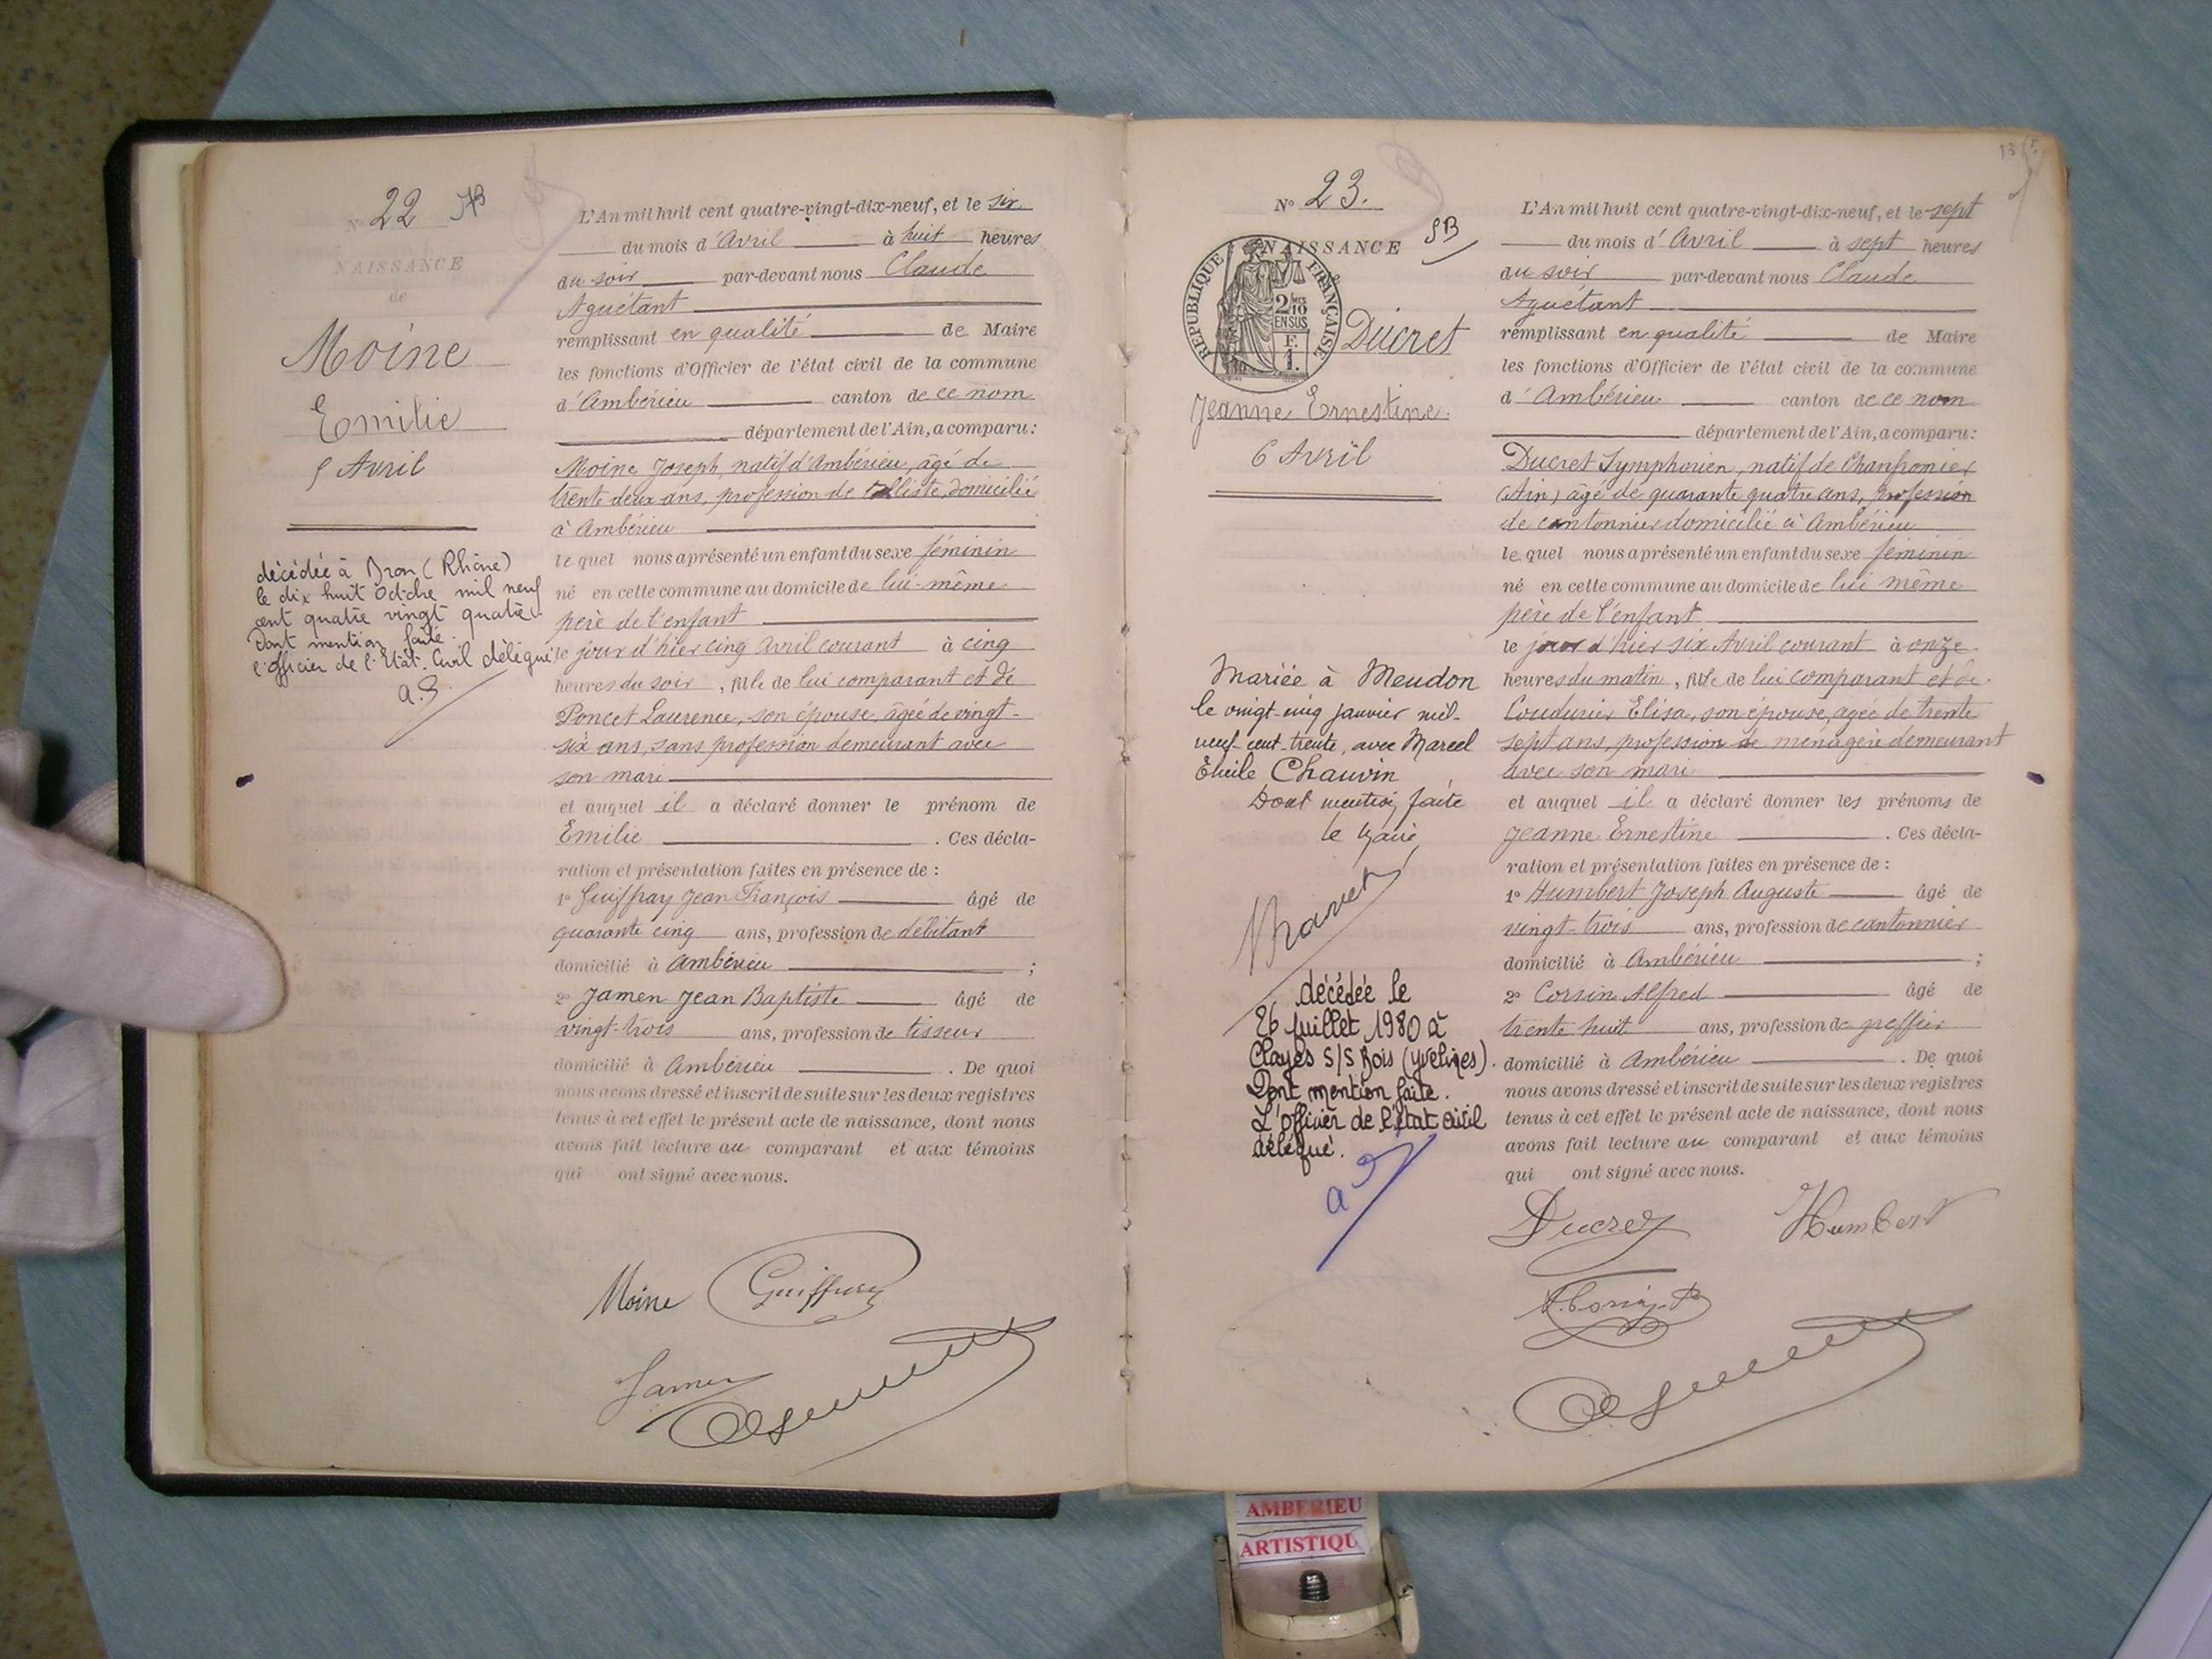 N° 22
NAISSANCE
de
Moine
Emilie
5 Avril
décédée à Bron (Rhône)
le dix huit Octobre mil neuf
cent quatre vingt quatre.
Dont mention faite.
l'officier de l'Etat. Civil délégué
L'An mil huit cent quatre-vingt-dix-neuf, et le six
du mois d'Avril à huit heures
du soir par-devant nous Claude
Aguétant
remplissant en qualité de Maire
les fonctions d'Officier de l'état civil de la commune
d'Ambérieu canton de ce nom
département de l'Ain, a comparu:
Moine Joseph, natif d'Ambérieu, âgé de
trente deux ans, profession de domicilié
à Ambérieu
le quel nous a présenté un enfant du sexe féminin
né en cette commune au domicile de lui-même
père de l'enfant
le jour d'hier cinq Avril courant à cinq
heures du soir, fille de lui comparant et de
Poncet Laurence, son épouse, âgée de vingt-
six ans, sans profession demeurant avec
son mari
et auquel il a déclaré donner le prénom de
Emilie. Ces décla-
ration et présentation faites en présence de:
1° Guiffray Jean François âgé de
quarante cinq ans, profession de débitant
domicilié à Ambérieu;
2° Jamen Jean Baptiste âgé de
vingt-trois ans, profession de tisseur
domicilié à Ambérieu. De quoi
nous avons dressé et inscrit de suite sur les deux registres
tenus à cet effet le présent acte de naissance, dont nous
avons fait lecture au comparant et aux témoins
qui ont signé avec nous.
Moine Guiffray
Jamen
N° 23.
NAISSANCE
RÉPUBLIQUE FRANÇAISE
2/10
EN SUS
F.
1.
Ducret
Jeanne Ernestine
6 Avril
Mariée à Meudon
le vingt-cinq janvier mil-
neuf-cent-trente, avec Marcel
Emile Chauvin
Dont mention faite
le Maire
décédée le
26 Juillet 1980 à
Clayes S/S Bois (Yvelines).
Dont mention faite.
L'officier de l'état civil
délégué.
L'An mil huit cent quatre-vingt-dix-neuf, et le sept
du mois d'Avril à sept heures
du soir par-devant nous Claude
Aguétant
remplissant en qualité de Maire
les fonctions d'Officier de l'état civil de la commune
d'Ambérieu canton de ce nom
département de l'Ain, a comparu:
Ducret Symphorien, natif de Chanfromier
(Ain) âgé de quarante quatre ans, profession
de cantonnier domicilié à Ambérieu
le quel nous a présenté un enfant du sexe féminin
né en cette commune au domicile de lui même
père de l'enfant
le jour d'hier six Avril courant à onze
heures du matin, fille de lui comparant et de
Coudurier Elisa, son épouse, âgée de trente
sept ans, profession de ménagère demeurant
avec son mari
et auquel il a déclaré donner les prénoms de
Jeanne Ernestine. Ces décla-
ration et présentation faites en présence de:
1° Humbert Joseph Auguste âgé de
vingt-trois ans, profession de cantonnier
domicilié à Ambérieu;
2° Corsin Alfred âgé de
trente huit ans, profession de greffier
domicilié à Ambérieu. De quoi
nous avons dressé et inscrit de suite sur les deux registres
tenus à cet effet le présent acte de naissance, dont nous
avons fait lecture au comparant et aux témoins
qui ont signé avec nous.
Ducret Humbert
AMBERIEU
ARTISTIQU